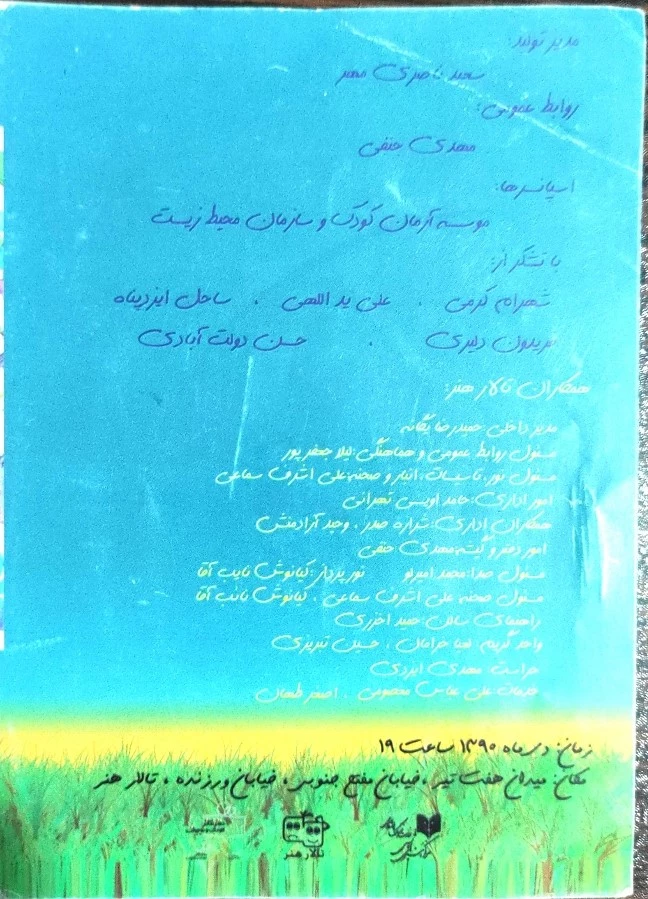 مدیر تولید:
سعید ناصری مهر
روابط عمومی:
مهدی حنفی
اسپانسرها:
موسسه آرمان کودک و سازمان محیط زیست
با تشکر از:
شهرام کرمی . علی ید اللهی . ساحل ایزدپناه
فریدون دلیری . حسن دولت آبادی
همکاران تالار هنر:
مدیر داخلی: حمیدرضا یگانه
مسئول روابط عمومی و هماهنگی: لیلا جعفرپور
مسئول نور، تاسیسات، انبار و صحنه: علی اشرف سماعی
امور اداری: حامد اویسی تهرانی
همکاران اداری: شراره صدر . وحید آزادمنش
امور دفتر و گیشه: مهدی حنفی
مسئول صدا: محمد امیرلو نورپرداز: کیانوش نایب آقا
مسئول صحنه علی اشرف سماعی . کیانوش نائب آقا
راهنمای سالن: حمید احرری
واحد گریم: حسین تبریزی
حراست: مهدی ایزدی
خدمات: علی عباس معصومی . اصغر طحان
زمان: دی ماه ۱۳۹۰ ساعت ۱۹
مکان: میدان هفت تیر ، خیابان مفتح جنوبی ، خیابان ورزنده ، تالار هنر
تالار هنر